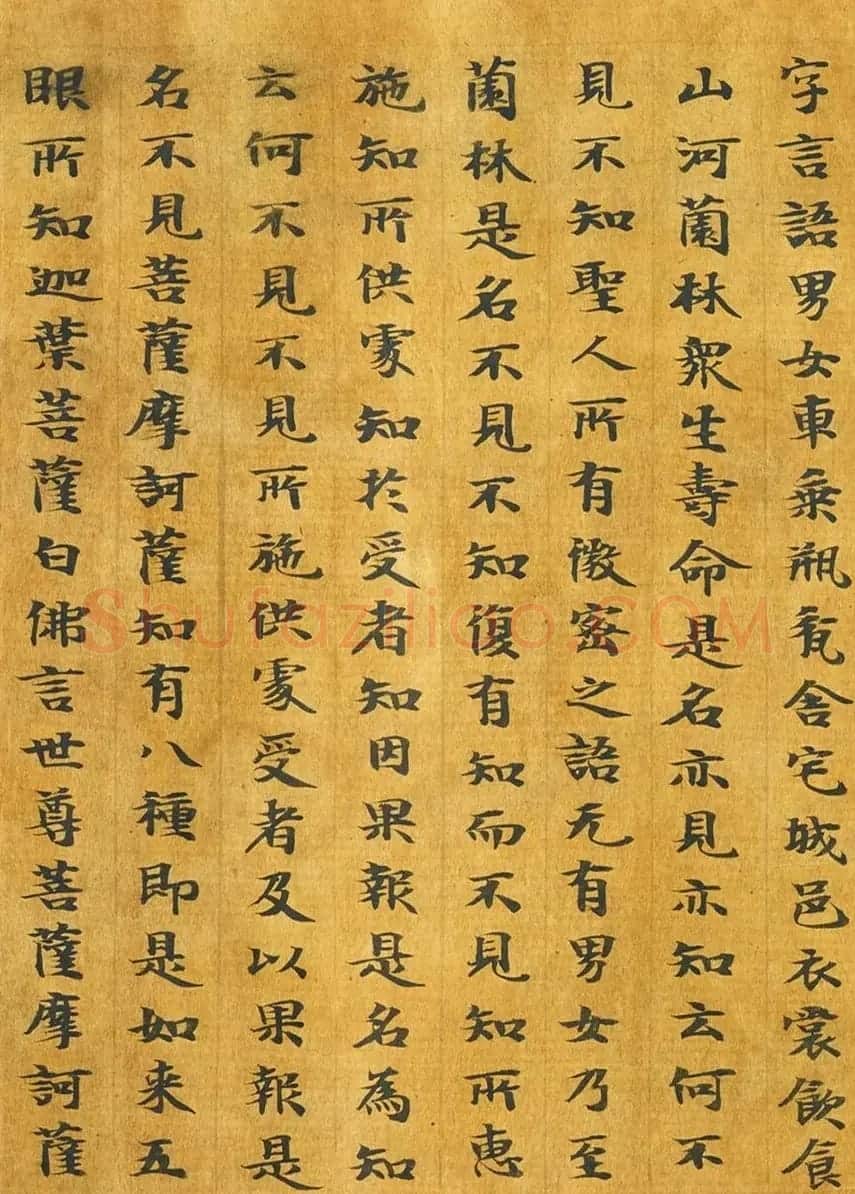 字言語男女車乗瓶瓫舍宅城邑衣裳飲食
山河薗林衆生壽命是名亦見亦知云何不
見不知聖人所有微密之語无有男女乃至
薗林是名不見不知復有知而不見知所惠
施知所供䖏知於受者知因果報是名為知
云何不見不見所施供䖏受者及以果報是
名不見菩薩摩訶薩知有八種即是如来五
眼所知迦葉菩薩白佛言世尊菩薩摩訶薩
Shufaziliao.COM